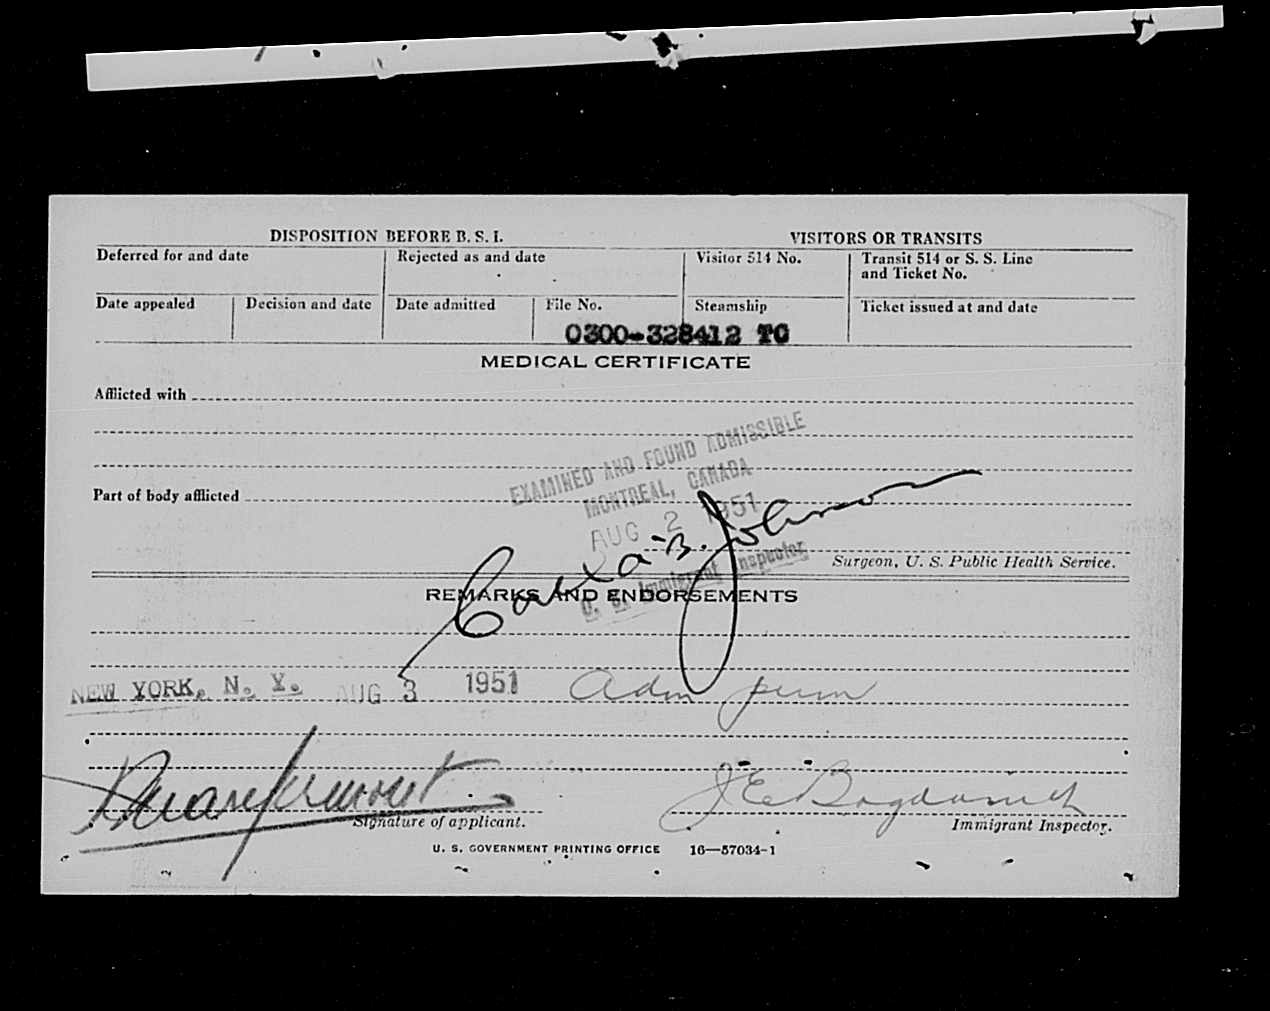 DISPOSITION BEFORE B. S. I. VISITORS OR TRANSITS
Deferred for and date Rejected as and date Visitor 514 No. Transit 514 or S. S. Line
and Ticket No.
Date appealed Decision and date Date admitted File No. Steamship Ticket issued at and date
0300-328412 TC
MEDICAL CERTIFICATE
Afflicted with
EXAMINED AND FOUND ADMISSIBLE
MONTREAL, CANADA
Part of body afflicted
AUG 2 1951
B. Johnson
U. S. Immigrant Inspector
Surgeon, U. S. Public Health Service.
REMARKS AND ENDORSEMENTS
NEW YORK, N. Y. AUG 3 1951 Adm perm
J E
Signature of applicant. Immigrant Inspector.
U. S. GOVERNMENT PRINTING OFFICE 16—57034-1